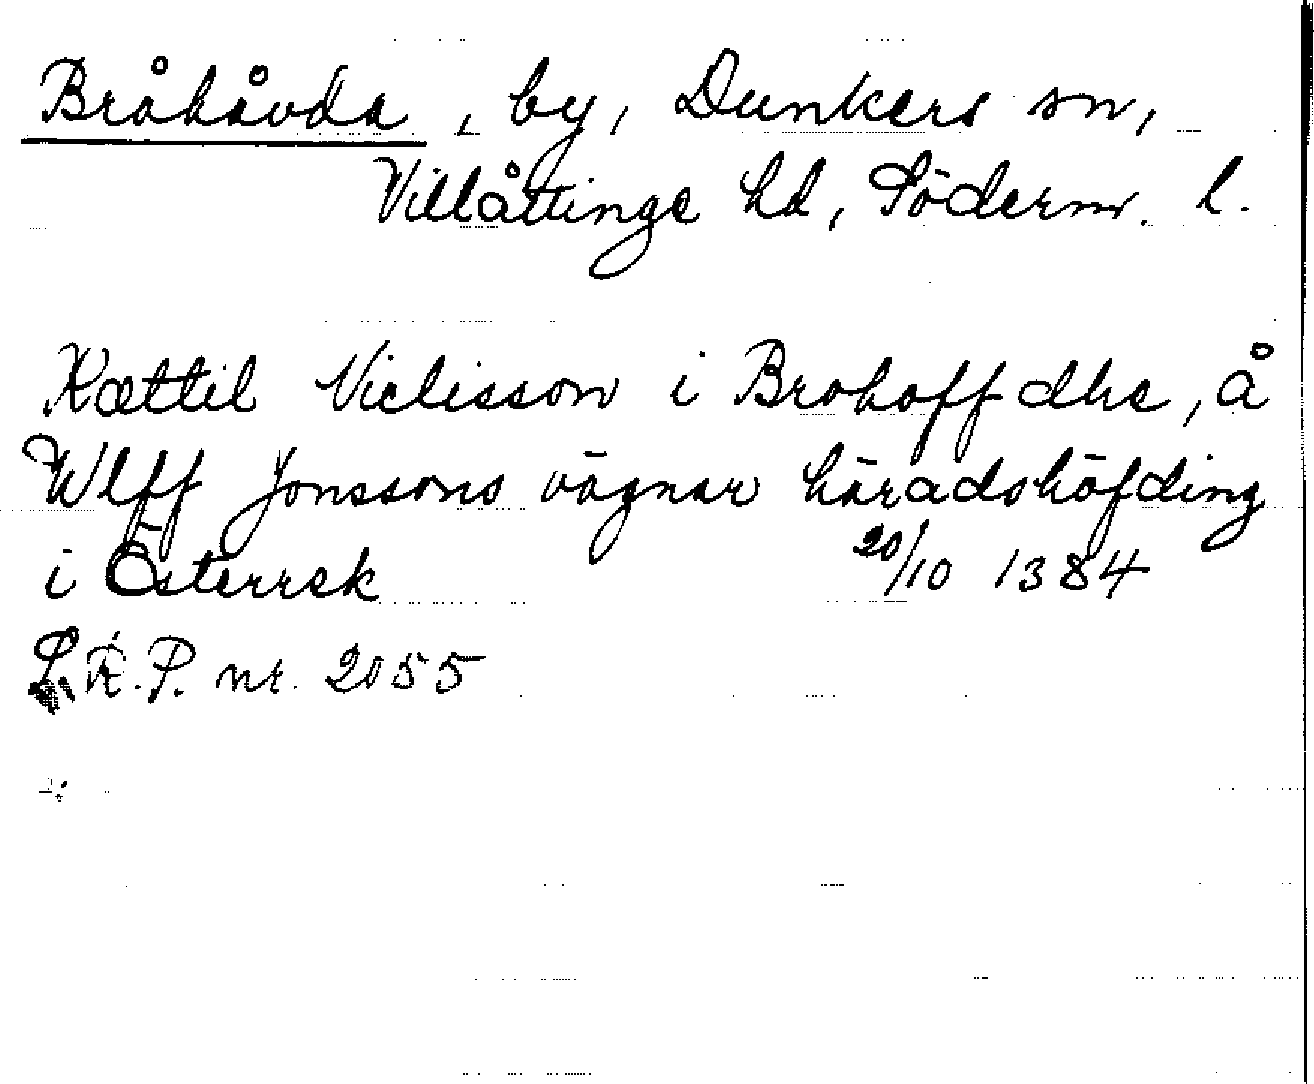 Bråhåvda, by, Dunkers sn,
Villåttinge hd, Söderm. l.
Kættil Niclisson i Brohoffdhe, å
Wlff Jonssons vägnar häradshöfding
i Österrek 20/10 1384
S.R.P. nr. 2055